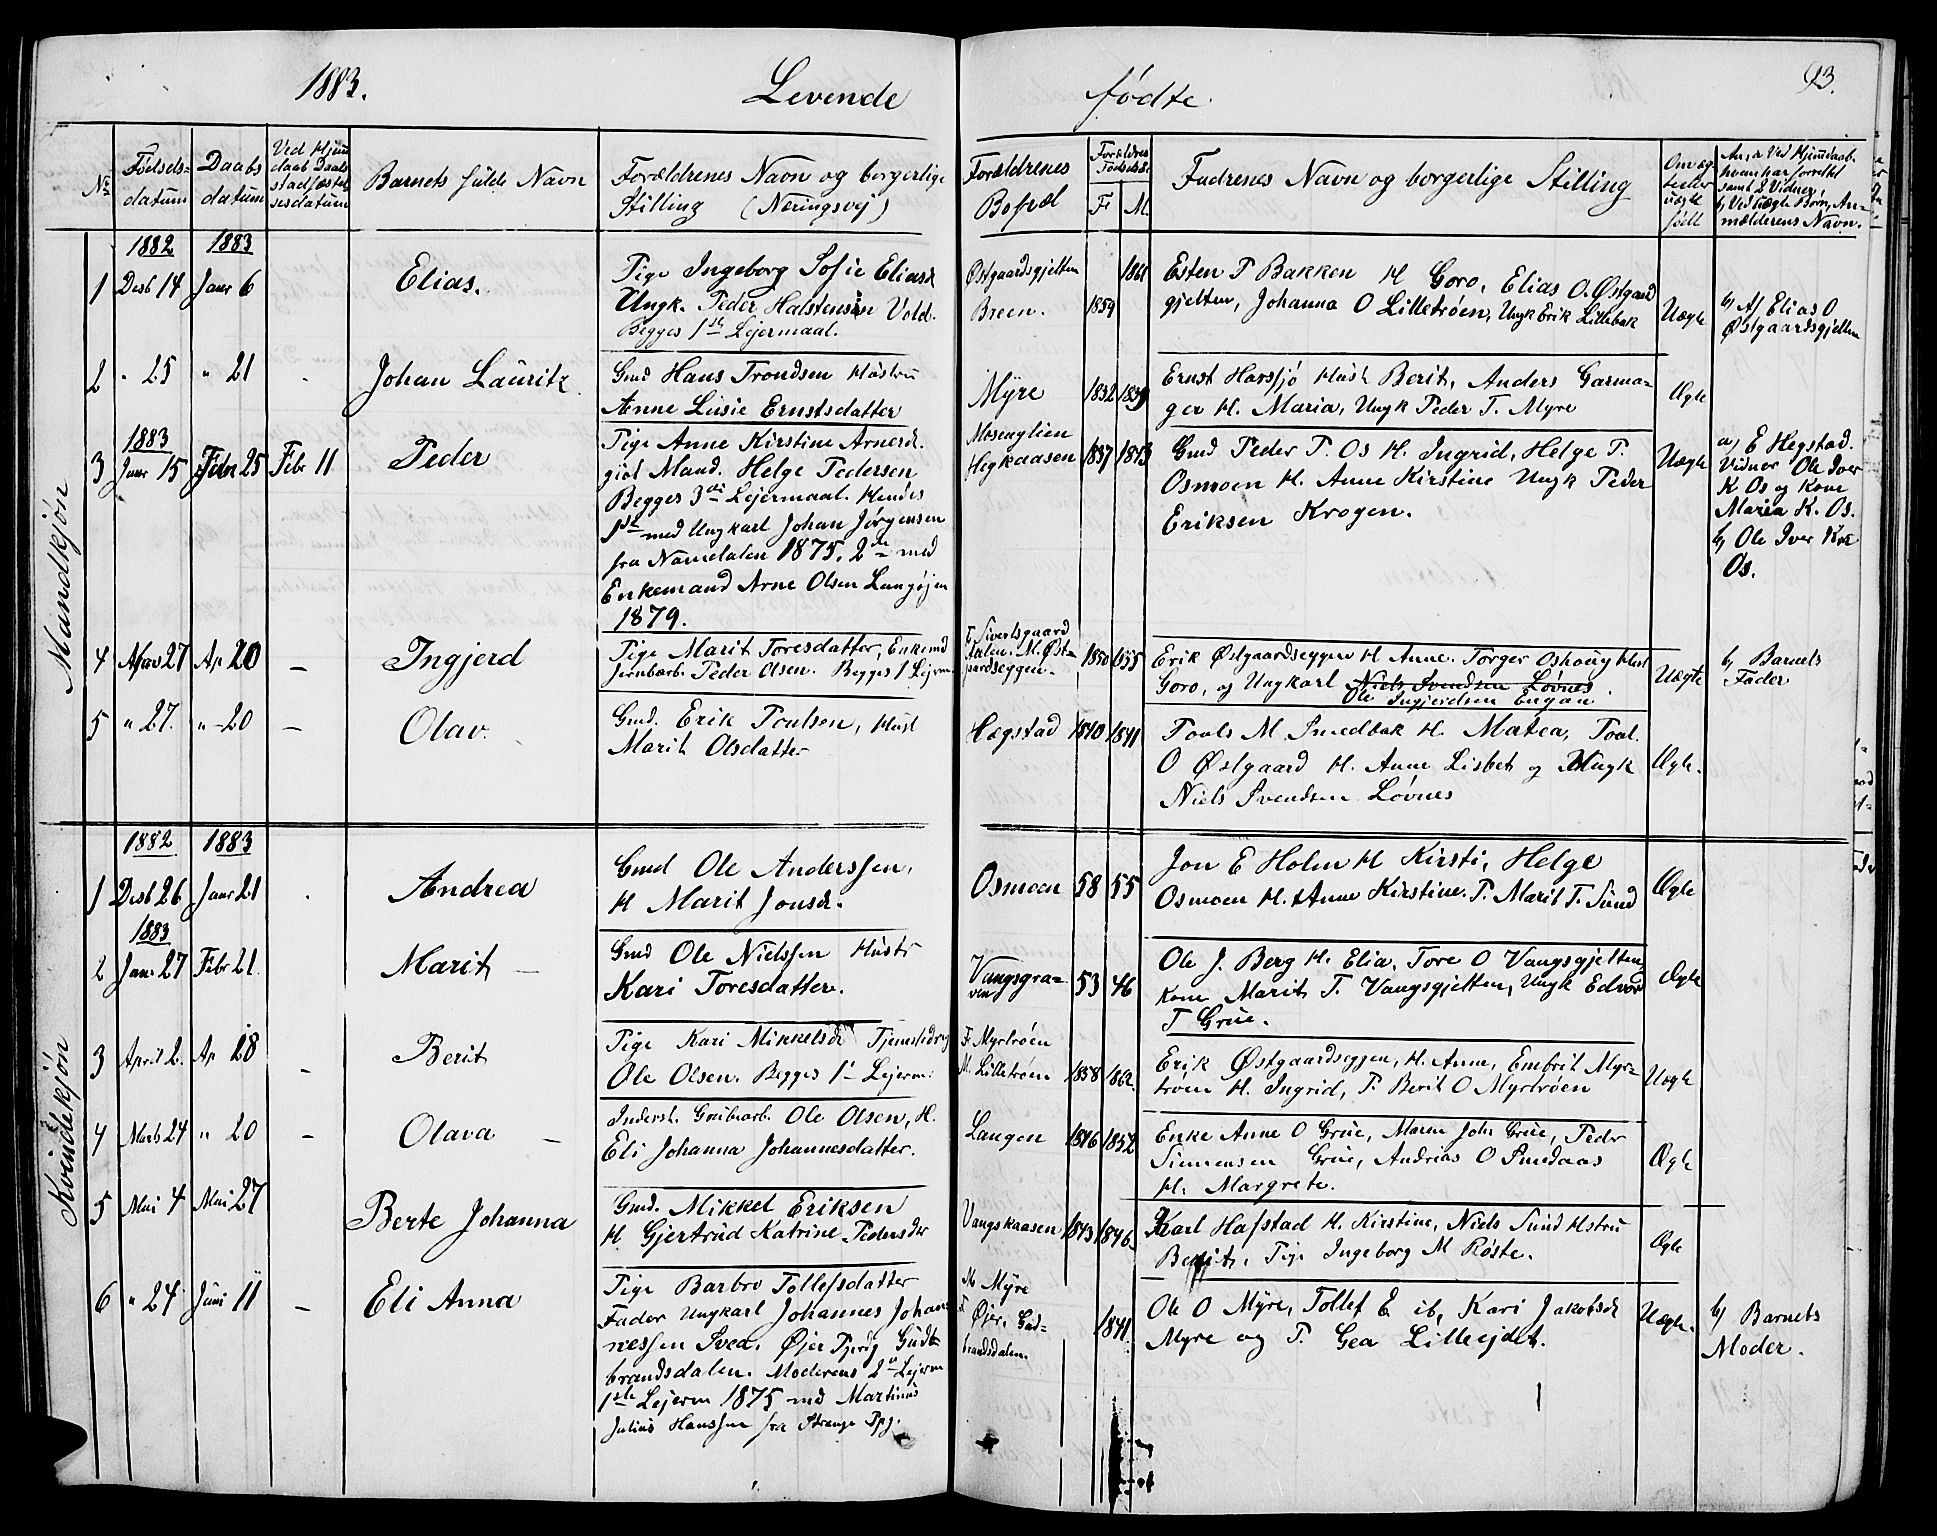 1883. Levende fødte. 93.
No Fødsels-datum Daabs datum Ved Hjemdaab Daabs stadfæstelsesdatum Barnets fulde Navn Forældrenes Navn og borgerlige Stilling (Næringsvej) Forældrenes Bopæl Forældres Fødselsår F. M. Fadrenes Navn og borgerlige Stilling Om ægte eller uægte født
Mandkjøn
1882 1883
1 Desb 14 Janr 6 Elias.
Pige Ingeborg Sofie Eliasd
Ungk. Peder Halstensen Vold.
Begges 1ste Lejermaal.
Østgaardsgjelten
Breen. 1859 1861
Esten P Bakken H Goro, Elias O. Østgaard
gjelten, Johanna O Lilletrøen, Ungk Erik Lillebak
Uægte
b, Af Elias O
Østgaardsgjelten
2 " 25 " 21 Johan Lauritz
Gmd Hans Trondsen Hustru
Anne Lusie Ernstsdatter
Myre 1832 1839
Ernst Harsjø Hust Berit, Anders Garma-
ger H. Maria, Ungk Peder T. Myre
Ægte
1883
3 Janr 15 Febr 25 Febr 11 Peder
Pige Anne Kirstine Arnesd.
gift Mand. Helge Pedersen
Begges 3die Lejermaal. Hendes
1ste med Ungkarl Johan Jørgensen
fra Namdalen 1875, 2de med
Enkemand Arne Olsen Langøjen
1879.
Mosenglien
Hegkaasen 1837 1843
Gmd Peder P. Os H. Ingrid, Helge P.
Osmoen H. Anne Kirstine Ungk Peder
Eriksen Krogen.
Uægte
a, E Hegstad.
Vidner Ole Iver
K Os og Kone
Maria K. Os.
b, Ole Iver
Os.
4 27 Ap 20 — Ingjerd
Pige Marit Toresdatter, Enkemd
Jernbarb. Peder Olsen. Begges 1 Lejerm.
F. Sivertsgaard
dalen. M. Øst-
gaardseggen. 1850 1855
Erik Østgaardseggen H Anne. Torger Oshaug Hust
Goro, og Ungkarl Niels Svendsen Løvnes.
Ole Ingjerdsen Engan
Uægte
b, Barnets
Fader
5 " 27. " 20 — Olav.
Gmd. Erik Poulsen, Hust
Marit Olsdatter
Hægstad 1840 1841
Povls M. Smedbak H. Matea, Povl.
O Østgaard H. Anne Lisbet og Ungk
Niels Svendsen Løvnes
Ægte.
Kvindekjøn
1882 1883
1 Desb 26 Janr 21 Andrea
Gmd Ole Anderssen,
H Marit Jonsd.
Osmoen 58 55
Jon E Holen H Kirsti, Helge
Osmoen H. Anne Kirstine. P. Marit T. Sund
Ægte
1883
2 Janr 27 Febr 21. Marit —
Gmd Ole Nielssen Hustr
Kari Toresdatter.
Vangsgra-
ven 53 46
Ole J. Berg H. Elia. Tore O Vangsgjelten,
Kone Marit T. Vangsgjelten, Ungk Edvard
T Grue.
Ægte
3 April 2. Ap 18 — Berit
Pige Kari Mikkelsd Tjenestedrg
Ole Olsen. Begges 1ste Lejerm.
F Myrtrøen
M. Lilletrøen 1858 1862.
Erik Østgaardseggen, H. Anne, Embrit Myr-
trøen H. Ingrid, P. Berit O Myrtrøen
Uægte
4 Marts 24 " 20 — Olava —
Inderst. Grubearb. Ole Olsen, H.
Eli Johanna Johannesdatter.
Langen 1846 1852
Enke Anne O Grue, Maren Johs Grue, Peder
Simensen Grue, Andrias O Sundaas
H. Margrete.
Ægte
5 Mai 4 Mai 27 Berte Johanna
Gmd. Mikkel Eriksen
H Gjertrud Katrine Pedersdtr
Vangskaasen 1843 1846
Karl Hafstad H. Kirstine, Niels Sund Hstru
Berit, Pige Ingeborg M Røste.
Ægte
6 " 24 Juni 11 — Eli Anna
Pige Barbro Tollefsdatter
Fader Ungkarl Johannes Johan-
nessen Svea. Øjer Pgjrdg Gudt
brandsdalen. Moderens 2de Lejerm
1ste Lejerm 1875 med Martinus
Julius Hanssen fra Strange Pgj.
M Myre
F Øjer, Gud-
brandsdalen. 1841.
Ole O Myre, Tollef E ib, Kari Jakobsd
Myre og P. Gea Lilleejdet.
Uægte.
b, Barnets
Moder.